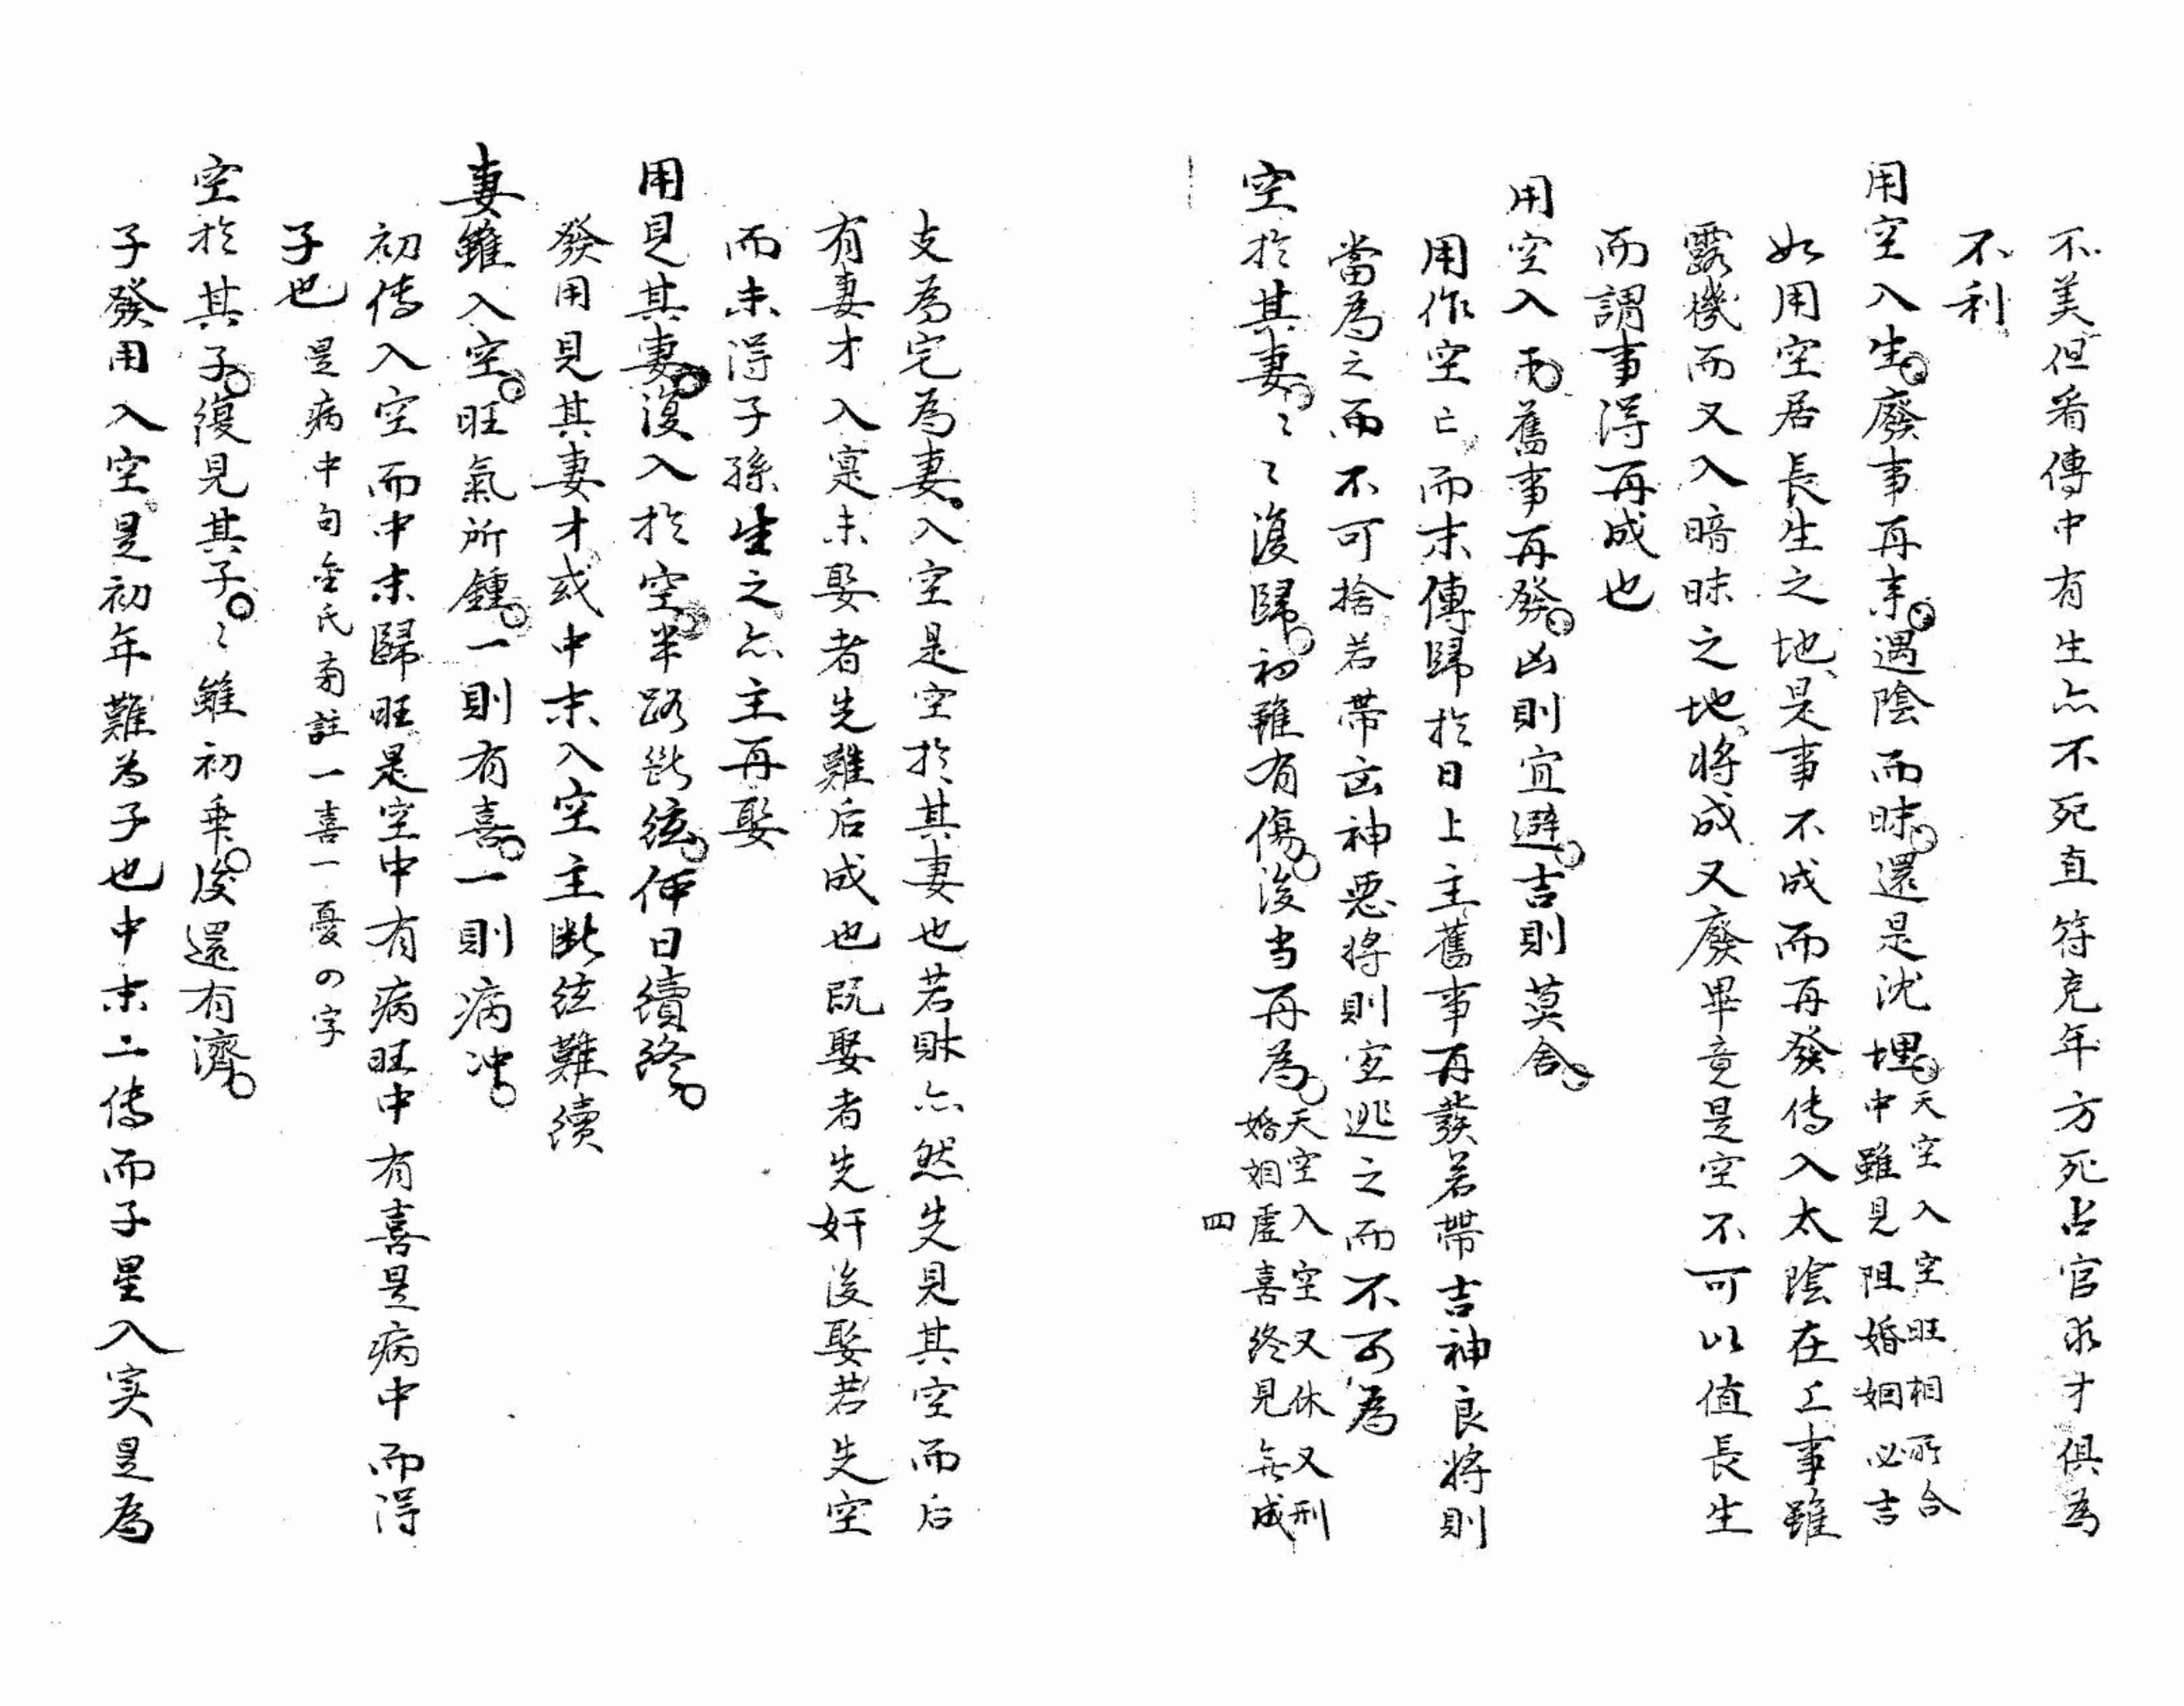 不美但看傳中有生亦不死直符克年方死占官求才俱為
不利
用空入生廢事再来遇陰而昧還是沈埋天空入空旺相所合
中雖見阻婚姻必吉
如用空居長生之地是事不成而再發传入太陰在上事雖
露機而又入暗昧之地将成又廢畢竟是空不可以值長生
而謂事得再成也
用空入雨舊事再發凶則宜避吉則莫舍
用作空亡而末傳歸於日上主舊事再發若帶吉神良将則
當為之而不可捨若帶凶神悪将則宜逃之而不可為
空於其妻〻〻復歸初雖有傷後当再為天空入空又休又刑
婚姻虛喜終見無成
四
支為宅為妻入空是空於其妻也若財亦然先見其空而后
有妻才入寔未娶者先難后成也既娶者先奸後娶若先空
而未得子孫生之亦主再娶
用見其妻復入於空半路斷絃何日續終
發用見其妻才或中末入空主断絃難續
妻雖入空旺氣所鍾一則有喜一則病冲
初传入空而中末歸旺是空中有病旺中有喜是病中而得
子也 是病中句金氏旁註一喜一憂の字
空於其子復見其子〻雖初乗後還有濟
子發用入空是初年難为子也中末二传而子星入実是為